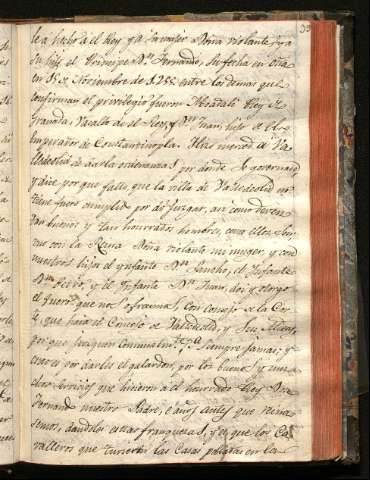 lea hecho a el Rey y a su muger Doña violante, y a
su hijo el Principe Dn. Fernando, su fecha en
en 15 de Noviembre de 1255 entre los demas que
confirman el privilegio fueron Rey de
Granada, Vasallo de el Rey, y Dn. Juan, hijo de el
Emperador de Constantinopla. Hizo merced a Va
lladolid de darla ordenanzas por donde se governase
y dice por que falle, que la villa de Valladolid no
tiene fuero cumplido por do juzgar, asi como deven
tan buenos y tan honrrados hombres, como ellos
mo con la Reina Doña violante mi muger, y con
nuestros hijos el ynfante Dn. Sancho, el Infante
Dn. Pedro, y el Infante Dn. Juan, doi y otorgo
el fuero que nos Con consejo de la Cor
te, que haia el Concejo de Valladolid, y Sus Aldeas
por que juzguen siempre jamas; y
por darles el galardon, por los buenos y mu
chos servicios que hicieron a el honrrado Rey Dn.
Fernando nuestro Padre, e a nos antes que reina
semos, dandoles estas franquezas, y es que los Ca
valleros que tuvieren las Casas pobladas en la